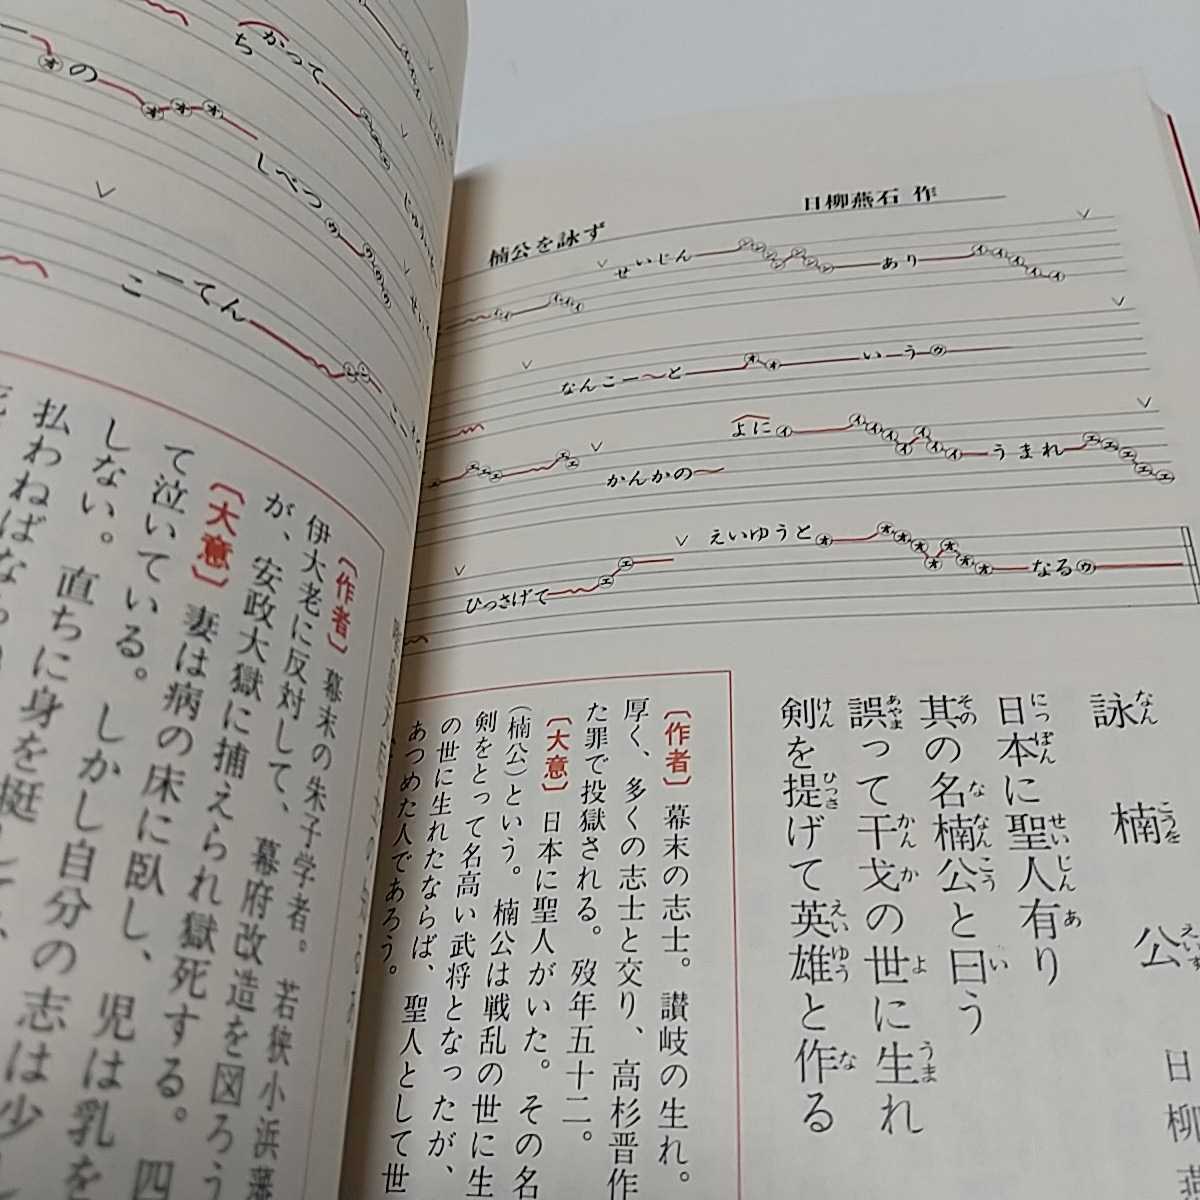 楠公を詠ず
日柳燕石 作
せいじん
あり
なんこー
と
いう
よに
うまれ
かんかの
えいゆうと
なる
ひっさげて
詠楠公
なん
こうを
日柳燕
日本に聖人有り
にっぽん
せいじん
あ
其の名楠公と曰う
その
な
なんこう
い
誤って干戈の世に生れ
あやま
かんか
よ
うま
剣を提げて英雄と作る
けん
ひっさ
えいゆう
な
〔作者〕 幕末の志士。讃岐の生れ。
厚く、多くの志士と交り、高杉晋作
た罪で投獄される。歿年五十二。
〔大意〕 日本に聖人がいた。その名
(楠公)という。楠公は戦乱の世に生
剣をとって名高い武将となったが、
の世に生れたならば、聖人として世
あつめた人であろう。
かって
ち
の
しべつ
ーてん
こ
〔作者〕 幕末の朱子学者。若狭小浜藩
伊大老に反対して、幕府改造を図ろう
が、安政大獄に捕えられ獄死する。四
〔大意〕 妻は病の床に臥し、児は乳を
て泣いている。しかし自分の志は少
しない。直ちに身を挺して、
払わねばなら